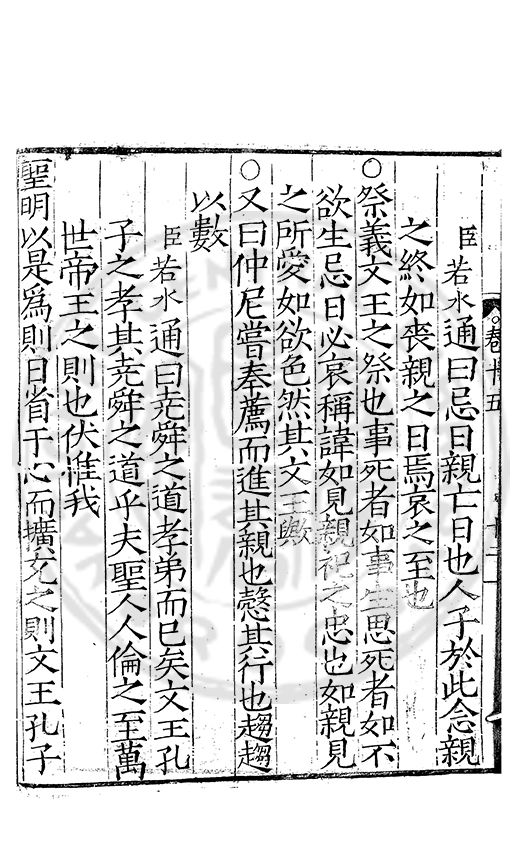 卷十五
十二
臣若水通曰忌日親亡日也人子於此念親
之終如喪親之日焉哀之至也
○祭義文王之祭也事死者如事生思死者如不
欲生忌日必哀稱諱如見親祀之忠也如親見
之所愛如欲色然其文王歟
○又曰仲尼嘗奉薦而進其親也慤其行也趨趨
以數
臣若水通曰堯舜之道孝弟而已矣文王孔
子之孝其堯舜之道乎夫聖人人倫之至萬
世帝王之則也伏惟我
聖明以是爲則日省于心而擴充之則文王孔子